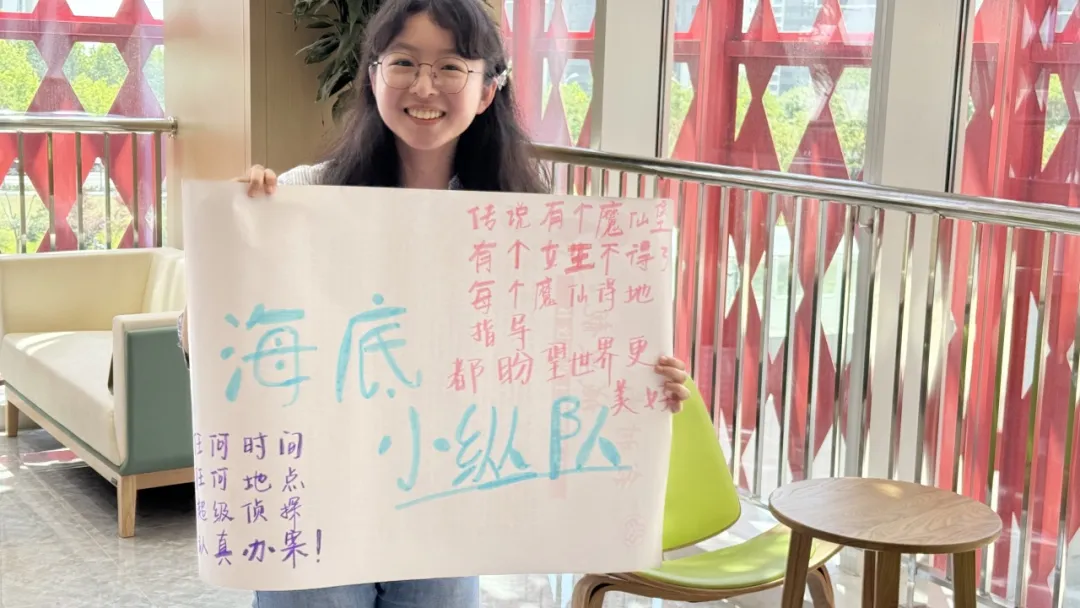 传说有个魔仙堡
有个女生不得了
每个魔仙得她
指导
都盼望世界更
美好
海底
小纵队
任何时间
任何地点
超级侦探
认真办案！